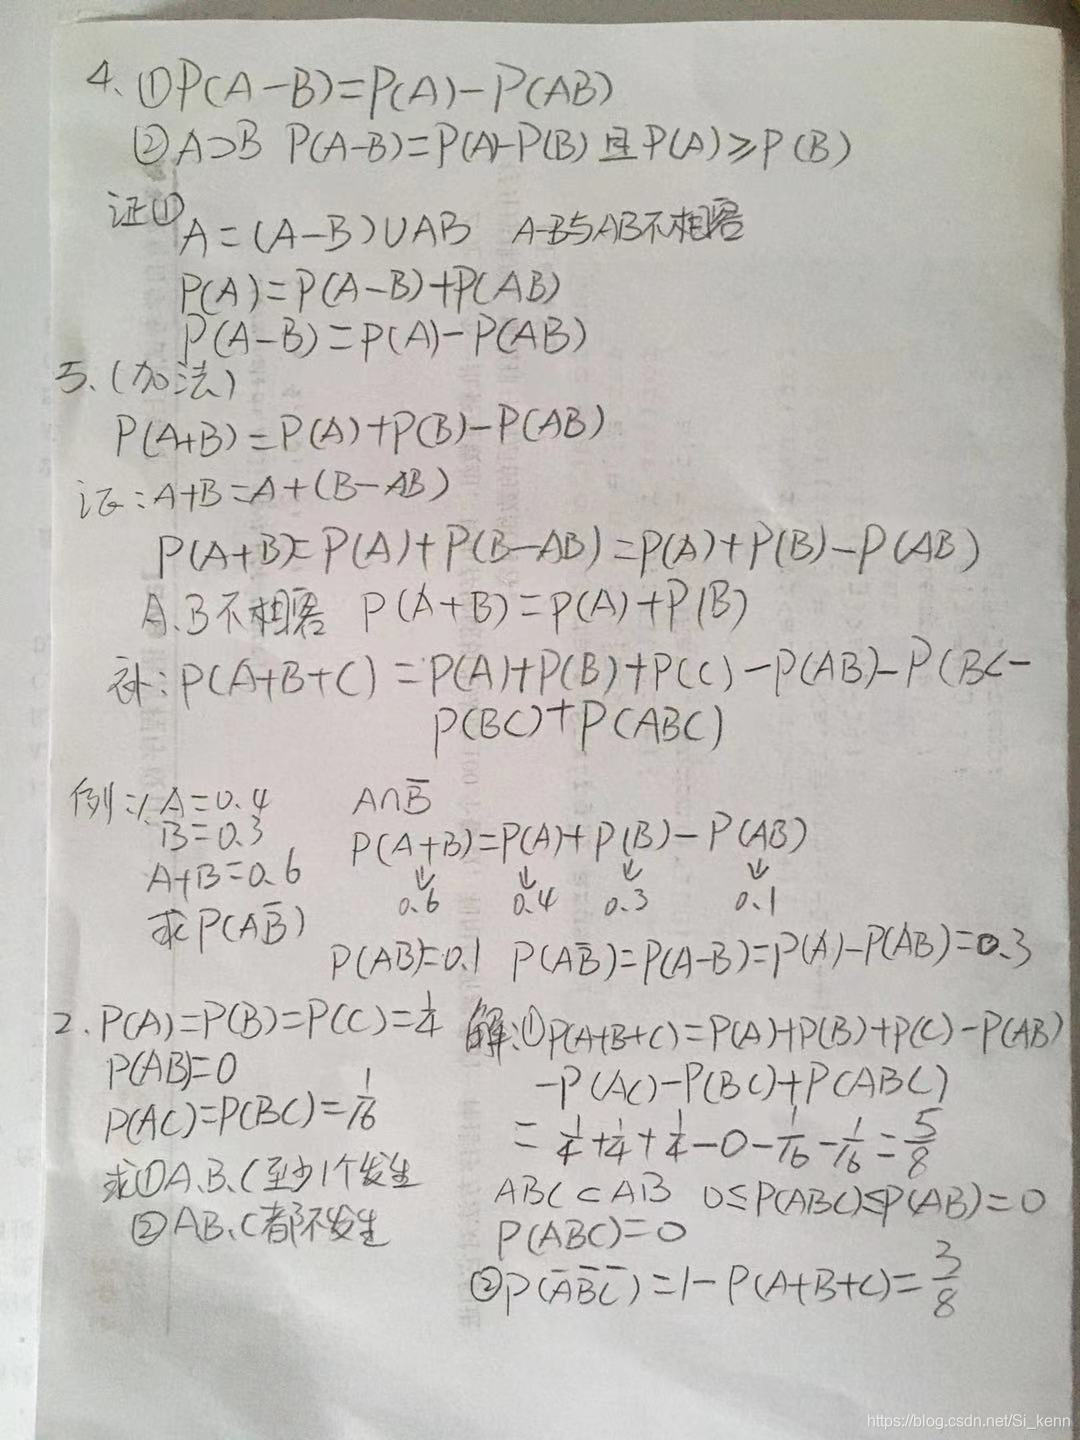 4、①P(A-B)=P(A)-P(AB)
②A⊃B P(A-B)=P(A)-P(B) 且P(A)≥P(B)
证①
A=(A-B)∪AB A-B与AB不相容
P(A)=P(A-B)+P(AB)
P(A-B)=P(A)-P(AB)
5、(加法)
P(A+B)=P(A)+P(B)-P(AB)
证:A+B=A+(B-AB)
P(A+B)=P(A)+P(B-AB)=P(A)+P(B)-P(AB)
A、B不相容 P(A+B)=P(A)+P(B)
补:P(A+B+C)=P(A)+P(B)+P(C)-P(AB)-P(BC-
P(BC)+P(ABC)
例:1、A=0.4 A∩B̅
B=0.3 P(A+B)=P(A)+P(B)-P(AB)
A+B=0.6 ↓ ↓ ↓ ↓
0.6 0.4 0.3 0.1
求P(AB̅)
P(AB)=0.1 P(AB̅)=P(A-B)=P(A)-P(AB)=0.3
2、P(A)=P(B)=P(C)=1/4
P(AB)=0
P(AC)=P(BC)=1/16
求①A、B、C至少1个发生
②A B、C都不发生
解:①P(A+B+C)=P(A)+P(B)+P(C)-P(AB)
-P(AC)-P(BC)+P(ABC)
=1/4+1/4+1/4-0-1/16-1/16=5/8
ABC⊂AB 0≤P(ABC)≤P(AB)=0
P(ABC)=0
②P(A̅B̅C̅)=1-P(A+B+C)=3/8
https://blog.csdn.net/Si_kenn